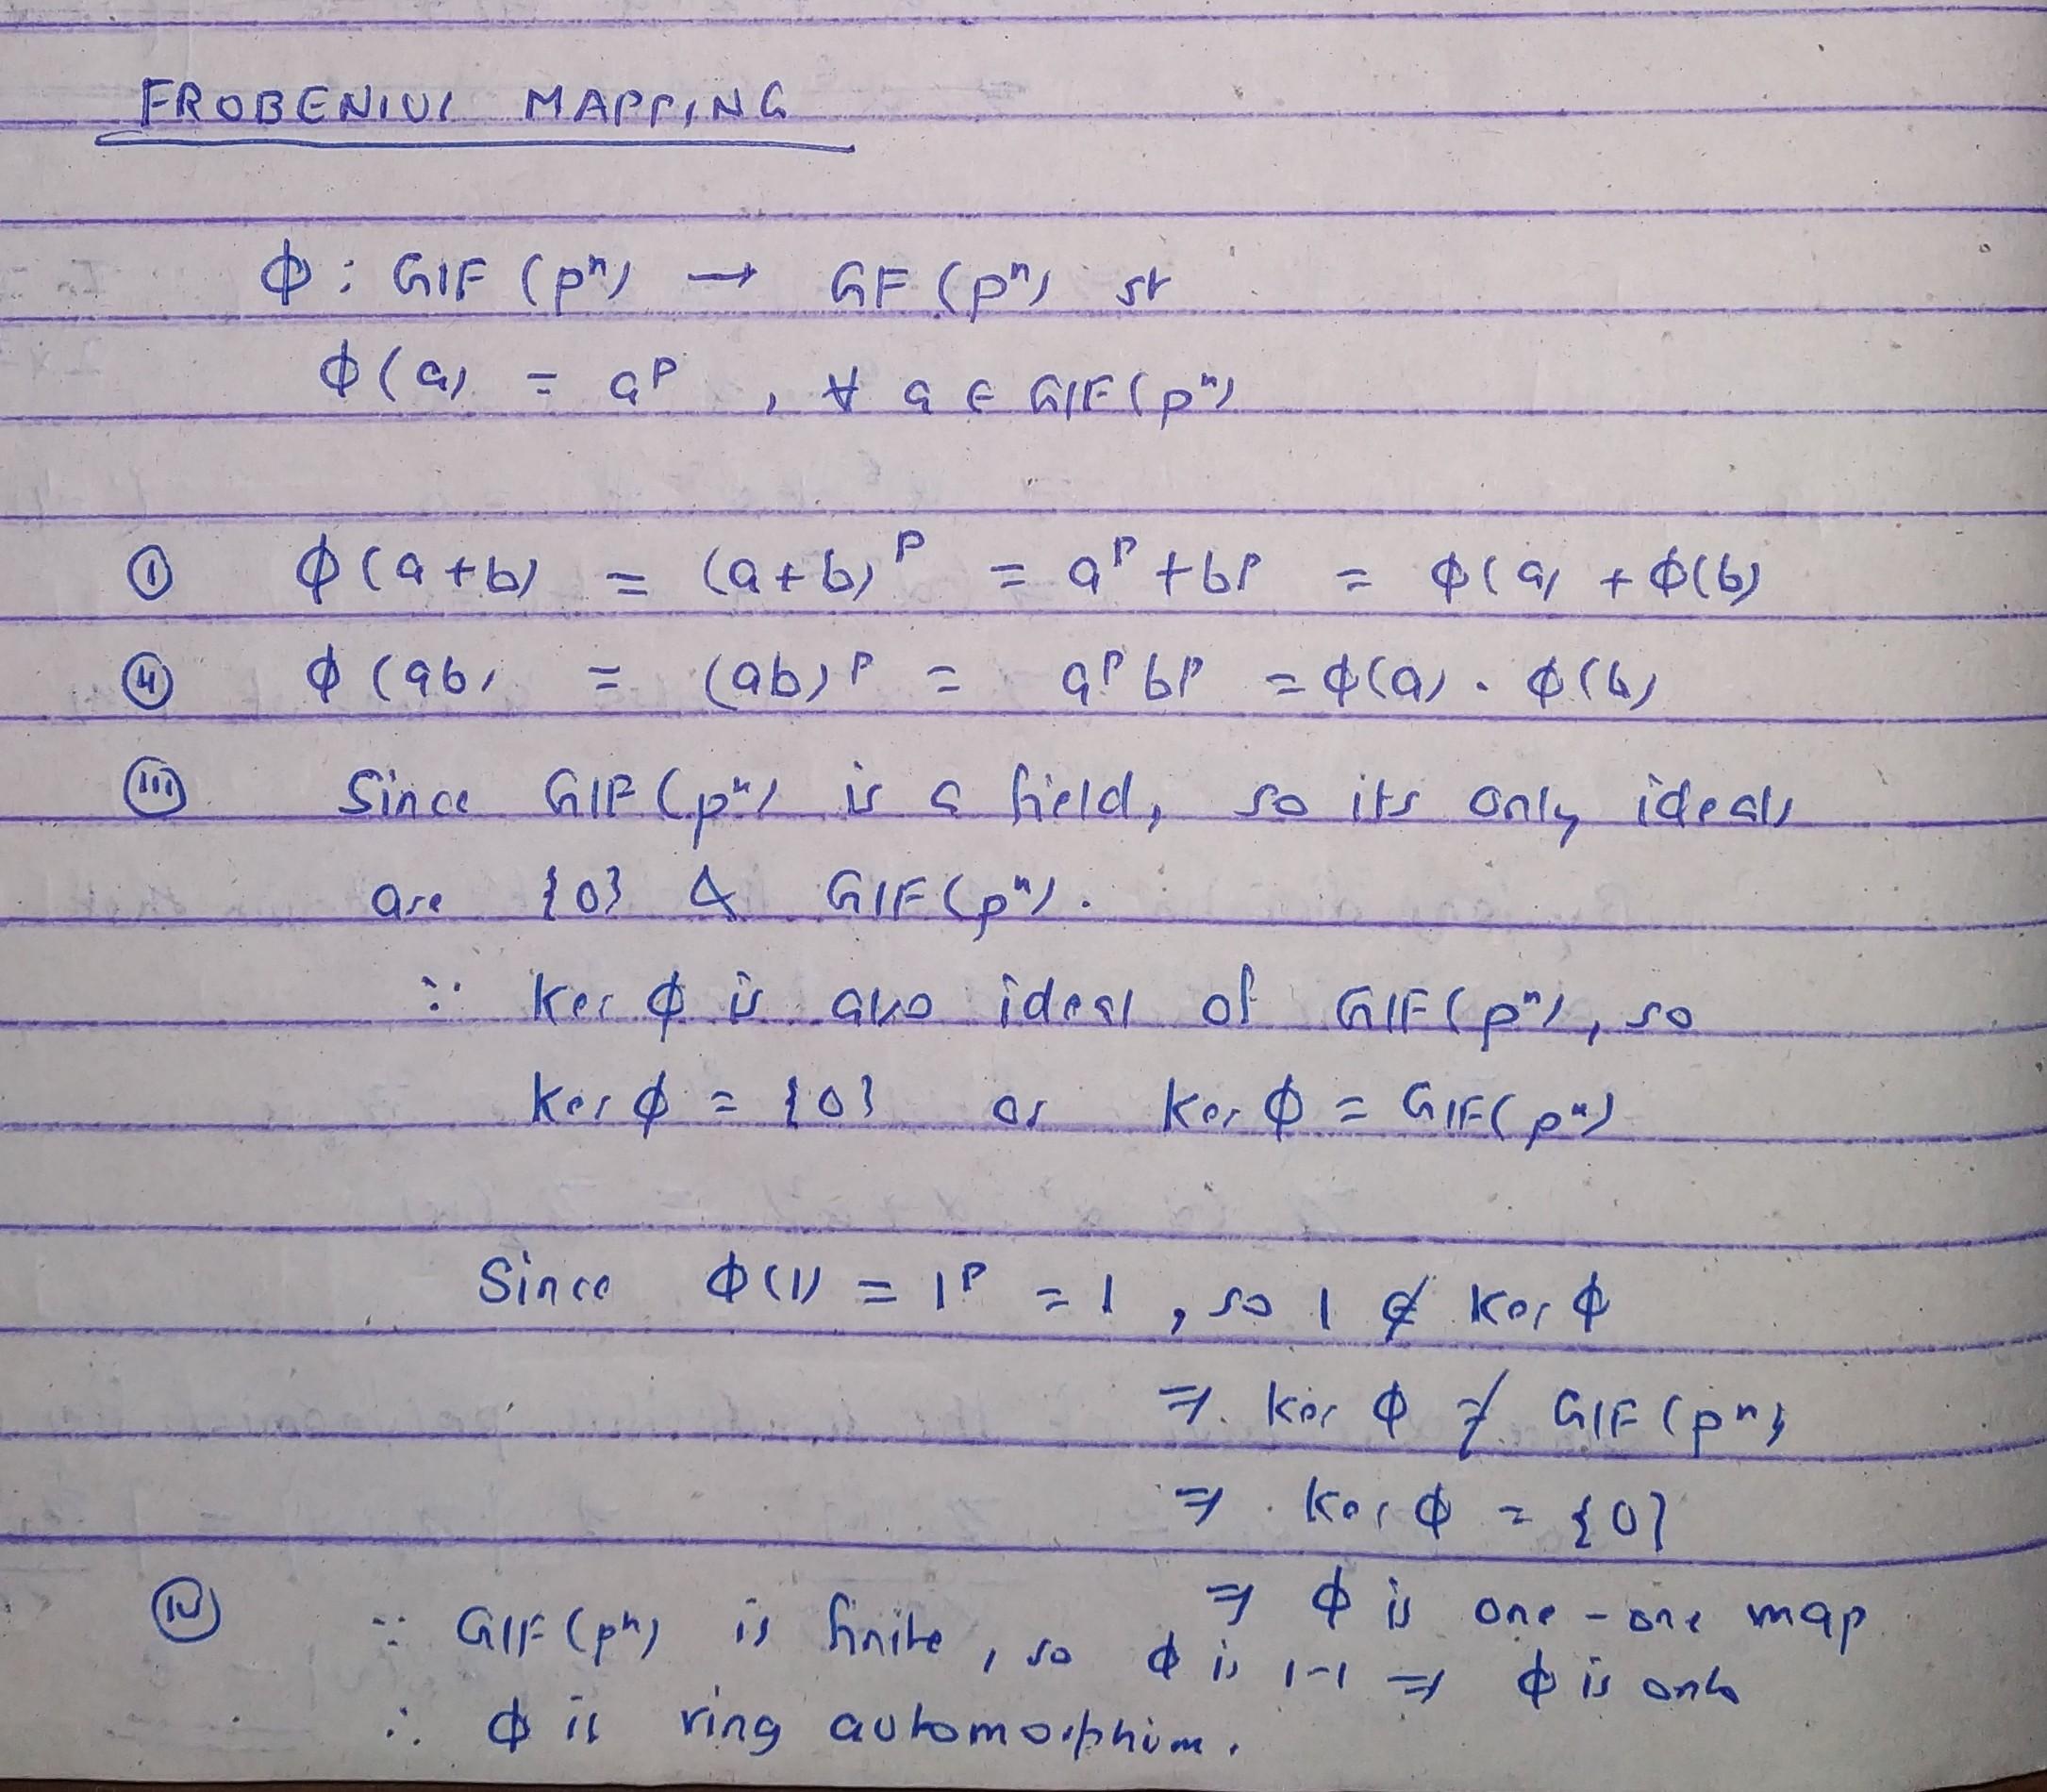 FROBENIUS MAPPING
ϕ : GF (pⁿ) → GF (pⁿ) st
ϕ(a) = aᵖ , ∀ a ∈ GF(pⁿ)
(i) ϕ(a+b) = (a+b)ᵖ = aᵖ + bᵖ = ϕ(a) + ϕ(b)
(ii) ϕ(ab) = (ab)ᵖ = aᵖ bᵖ = ϕ(a) . ϕ(b)
(iii) Since GF(pⁿ) is a field, so its only ideals
are {0} & GF(pⁿ).
∵ Ker ϕ is also ideal of GF(pⁿ), so
Ker ϕ = {0} or Ker ϕ = GF(pⁿ)
Since ϕ(1) = 1ᵖ = 1 , so 1 ∉ Ker ϕ
⇒ Ker ϕ ≠ GF(pⁿ)
⇒ Ker ϕ = {0}
⇒ ϕ is one-one map
(iv) ∵ GF(pⁿ) is finite , so ϕ is 1-1 ⇒ ϕ is onto
∴ ϕ is ring automorphism.